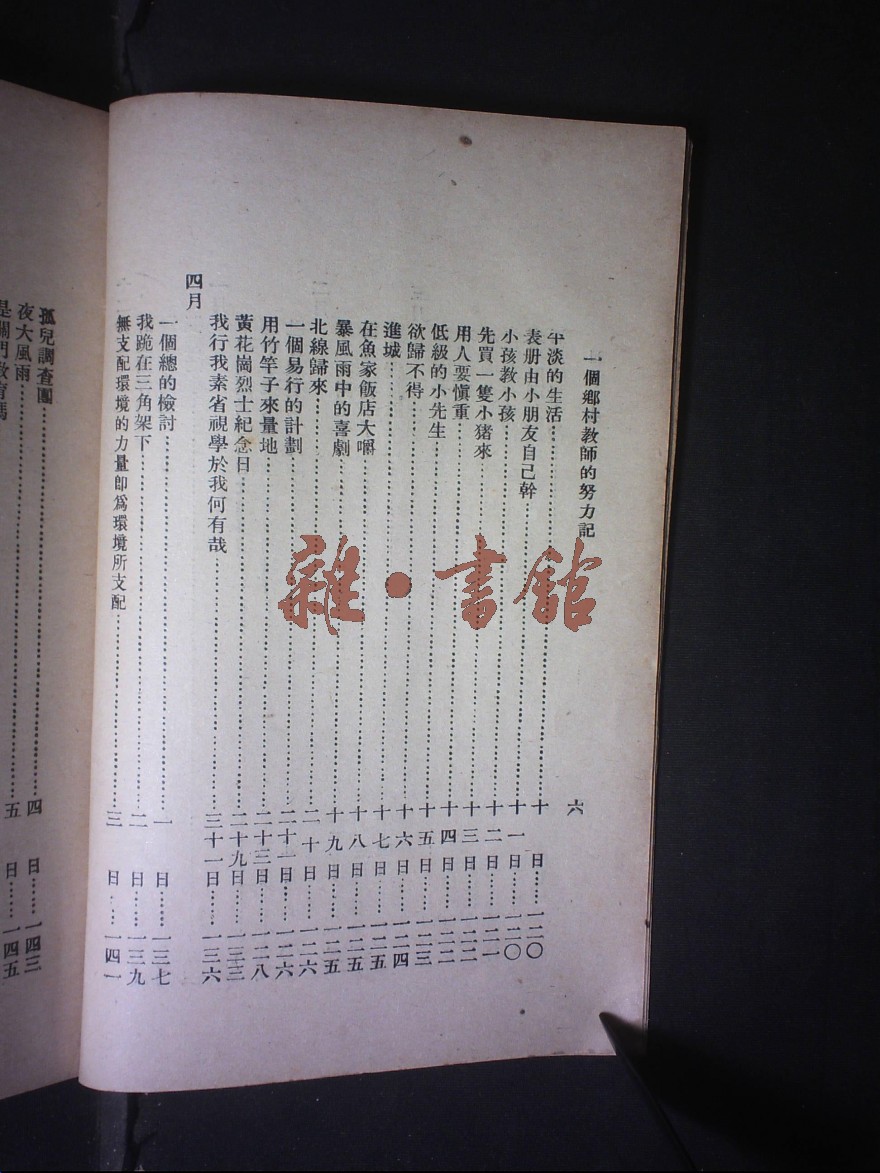 一個鄉村教師的努力記 六
平淡的生活……十日……一二〇
表册由小朋友自己幹……十一日……一二〇
小孩教小孩……十二日……一二一
先買一隻小猪來……十三日……一二二
用人要慎重……十四日……一二二
低級的小先生……十五日……一二三
欲歸不得……十六日……一二四
進城……十七日……一二五
在魚家飯店大嚼……十八日……一二五
暴風雨中的喜劇……十九日……一二五
北線歸來……二十日……一二六
一個易行的計劃……二十一日……一二六
用竹竿子來量地……二十三日……一二八
黃花崗烈士紀念日……二十九日……一三三
我行我素省視學於我何有哉……三十一日……一三六
四月
一個總的檢討……一日……一三七
我跪在三角架下……二日……一三九
無支配環境的力量卽爲環境所支配……三日……一四一
孤兒調查團……四日……一四三
夜大風雨……五日……一四五
是關門教育嗎
雜·書館